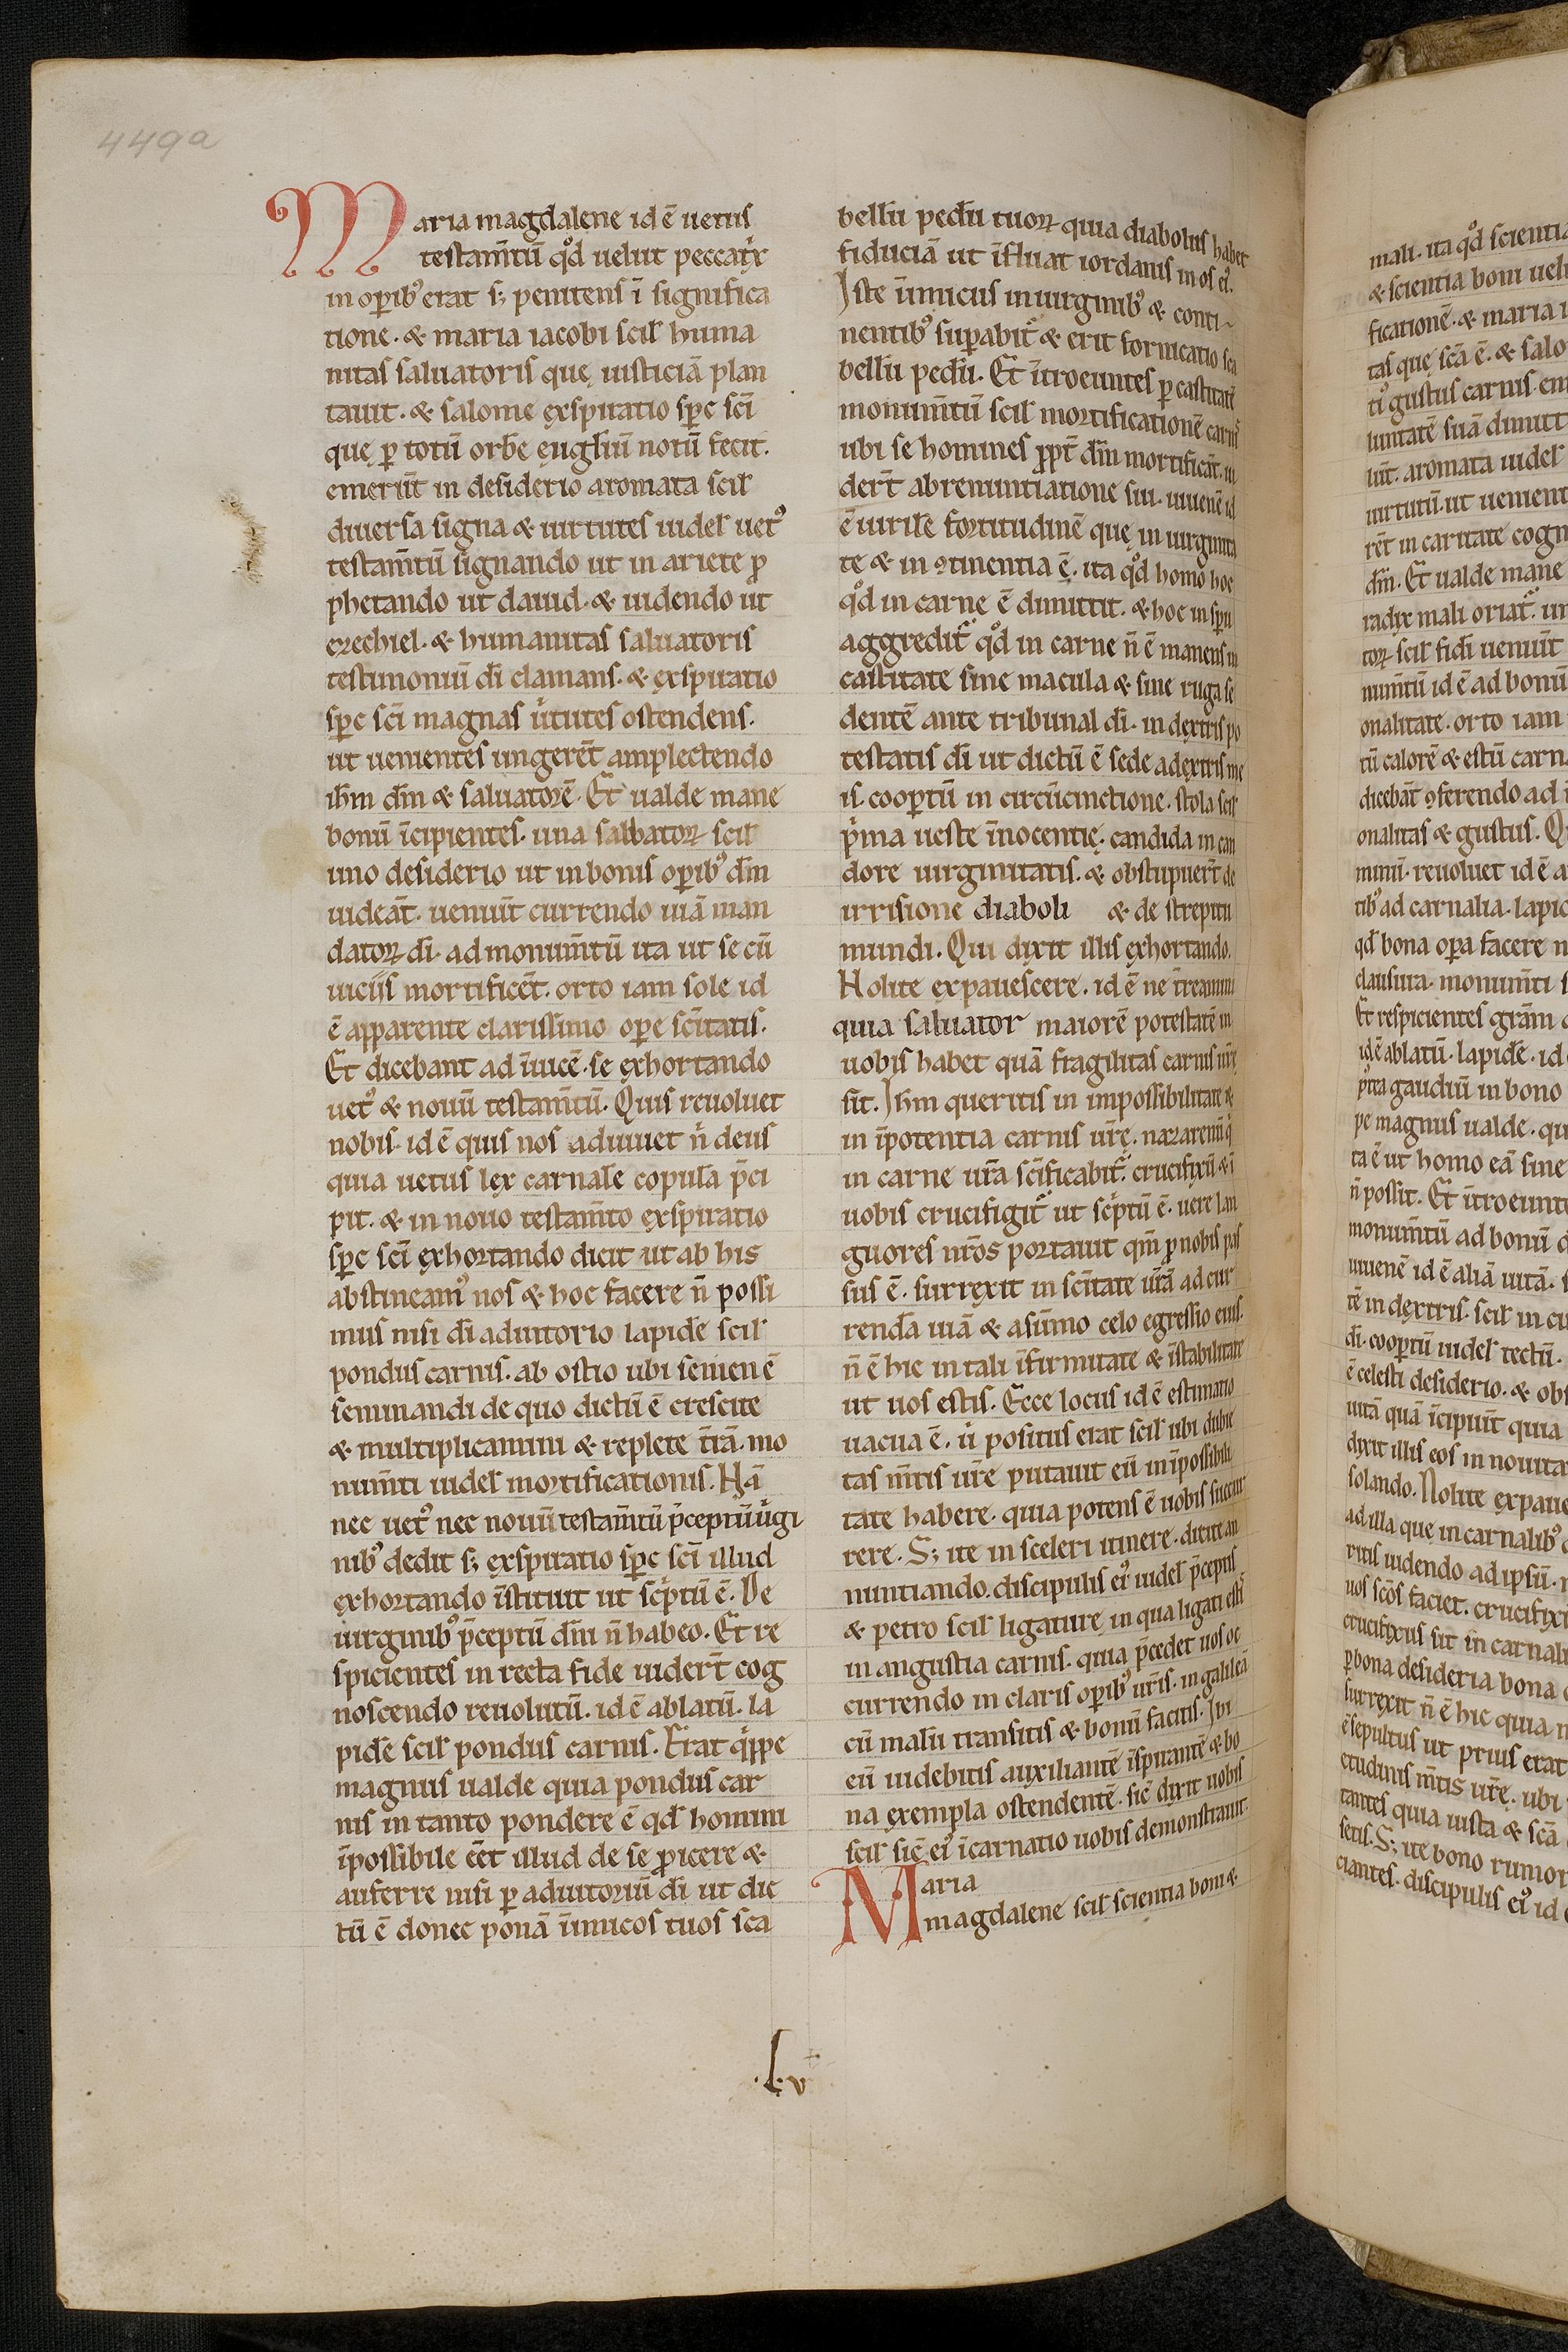 449a
Maria magdalene id ē uetus
testam̄tū qd̊ uelut peccatͥx
in op̄ib᾿ erat s; penitens ī significa
tione. & maria iacobi scil̄ huma
nitas saluatoris quę iusticiā plan
tauit. & salome exspiratio sp̄c sc̄i
quę p totū orbē ęugl̄iū notū fecit.
emerūt in desiderio aromata scil̄
diuersa signa & uirtutes uidel̄ uet᾿
testam̄tū signando ut in ariete p̄
phetando ut dauid. & uidendo ut
ezechiel. & humanitas saluatoris
testimoniū dī clamans. & exspiratio
sp̄c sc̄i magnas ůtutes ostendens.
ut uenientes ungerēt amplectendo
ih̄m dm̄ & saluatorē. Et ualde mane
bonū īcipientes. una sabbatoꝝ scil̄
uno desiderio ut in bonis op̄ib᾿ dm̄
uideāt. ueniūt currendo uiā man
datoꝝ dī. ad monum̄tū ita ut se cū
uiciis mortificēt. orto iam sole id
ē apparente clarissimo ope sc̄itatis.
Et dicebant ad īuicē. se exhortando
uet᾿ & nouū testam̄tū. Quis reuoluet
nobis. id ē quis nos adiuuet n̊ deus
quia uetus lex carnalē copulā p̄ci
pit. & in nouo testam̄to exspiratio
sp̄c sc̄i exhortando dicit ut ab his
abstineam᾿ nos & hoc facere n̄ possi
mus nisi dī adiutorio lapidē scil̄
pondus carnis. ab ostio ubi semen ē
seminandi de quo dictū ē crescite
& multiplicamini & replete t̄rā. mo
num̄ti uidel̄ mortificationis. Hā
nec uet᾿ nec nouū testam̄tū p̄ceptū ůgi
nib᾿ dedit s; exspiratio sp̄c sc̄i illud
exhortando īstituit ut scͥptū ē. De
uirginib᾿ p̄ceptū dn̄i n̄ habeo. Et re
spicientes in recta fide uidert̄ cog
noscendo reuolutū. id ē ablatū. la
pidē scil̄ pondus carnis. Erat qͥppe
magnus ualde quia pondus car
nis in tanto pondere ē qd̄ homini
īpossibile eēt illud de se p̄icere &
auferre nisi p adiutoriū dī ut dic
tū ē donec ponā inimicos tuos sca
bellū pedū tuoꝝ quia diabolus habet
fiduciā ut īfluat iordanis in os ei᾿.
Iste inimicus in uirginib᾿ & conti-
nentib᾿ supabit̄ & erit fornicatio sca
bellū pedū. Et ītroeuntes p castitatē
monum̄tū scil̄ mortificationē carnis
ubi se homines ppt̄ dm̄ mortificāt. ui
dert̄ abrenuntiatione sui. iuuenē id
ē uirilē fortitudinē quę in uirginita
te & in ꝯtinentia ē. ita qd̊ homo hoc
qd̊ in carne ē dimittit. & hoc in spū
aggredit̄ qd̊ in carne n̄ ē manens in
castitate sine macula & sine ruga se
dentē ante tribunal dī. in dextris po
testatis dī ut dictū ē sede a dextris me
is. coopertū in circūcinctione. stola scil̄
pͥma ueste īnocentię. candida in can
dore uirginitatis. & obstupuert̄ de
irrisione diaboli & de strepitu
mundi. Qui dixit illis exhortando.
Nolite expauescere. id ē ne t̄reamini
quia saluator maiorē potestatē in
uobis habet quā fragilitas carnis ur̄ę
sit. Ihm̄ queritis in impossibilitate &
in īpotentia carnis ur̄ę. nazarenū qͥ
in carne ur̄a sc̄ificabit̄. crucifixū & ī
uobis crucifigit̄ ut scͥptū ē. uere lan
guores nr̄os portauit qm̄ p nobis pas
sus ē. surrexit in sc̄itate ur̄ā ad cur
rendā uiā & asūmo celo egressio eius.
n̄ ē hic in tali īfirmitate & īstabilitate
ut uos estis. Ecce locus id ē estimatio
uacua ē. ů positus erat scil̄ ubi dubie
tas m̄tis ur̄e putauit eū in īpossibili
tate habere. quia potens ē uobis succur
rere. S; ite in sceleri itinere. dicite an
nuntiando. discipulis ei᾿ uidel̄ p̄ceptis
& petro scil̄ ligaturę in qua ligati estis
in angustia carnis. quia p̄cedet uos oc
currendo in claris op̄ib᾿ ur̄is. in galileā
cū malū transitis & bonū facitis. Ibi
eū uidebitis auxiliantē īspirantē & bo
na exempla ostendentē. sic̄ dixit uobis
scil̄ sic̄ ei᾿ īcarnatio uobis demonstrauit.
Maria
magdalene scil̄ scientia boni &
.Lv
mali. ita qd̊ scientia
& scientia boni uel
ficationē. & maria
tas que sc̄a ē. & salo
ti᾿ gustus carnis.
luntatē suā dimitt
lūt. aromata uidel̄
uirtutū. ut uenient
rēt in caritate cogn
dm̄. Et ualde mane
radix mali oriat̄.
toꝝ scil̄ fidī ueniūt
num̄tū id ē ad bonū
onalitate. orto iam
tū calorē & estū carn
dicebāt ꝯferendo ad
onalitas & gustus.
reuoluet id ē a
tib᾿ ad carnalia. lapid
qd̄ bona opa facere
clausura. monum̄ti
Et respicientes grām
id ē ablatū. lapidē. id
gaudiū in bono
pe magnus ualde. qu
ta ē ut homo eā sine
n̄ possit. Et ītroeunte
monum̄tū ad bonū
iuuenē id ē aliā uitā.
tē in dextris. scil̄ in
dī. coopertū uidel̄ tectū.
ē celesti desiderio. & obs
uitā quā īcipiūt quia
dixit illis eos in nouita
solando. Nolite expaue
ad illa que in carnalib᾿
ritis uidendo ad ipsū.
uos sc̄os faciet. crucifixū
crucifixus sit in carnali
p bona desideria bona
surrexit n̄ ē hic quia
ē sepultus ut prius erat
etudinis m̄tis ur̄ę. ubi
tantes quia iusta & sc̄ā
setis. S; ite bono rumor
ciantes. discipulis ei᾿ id